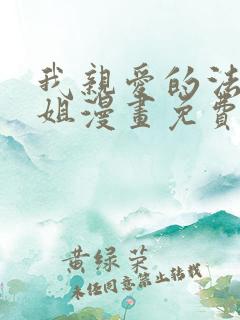 我親愛的法
姐漫畫免費
黄绿菜
未经同意禁止转载